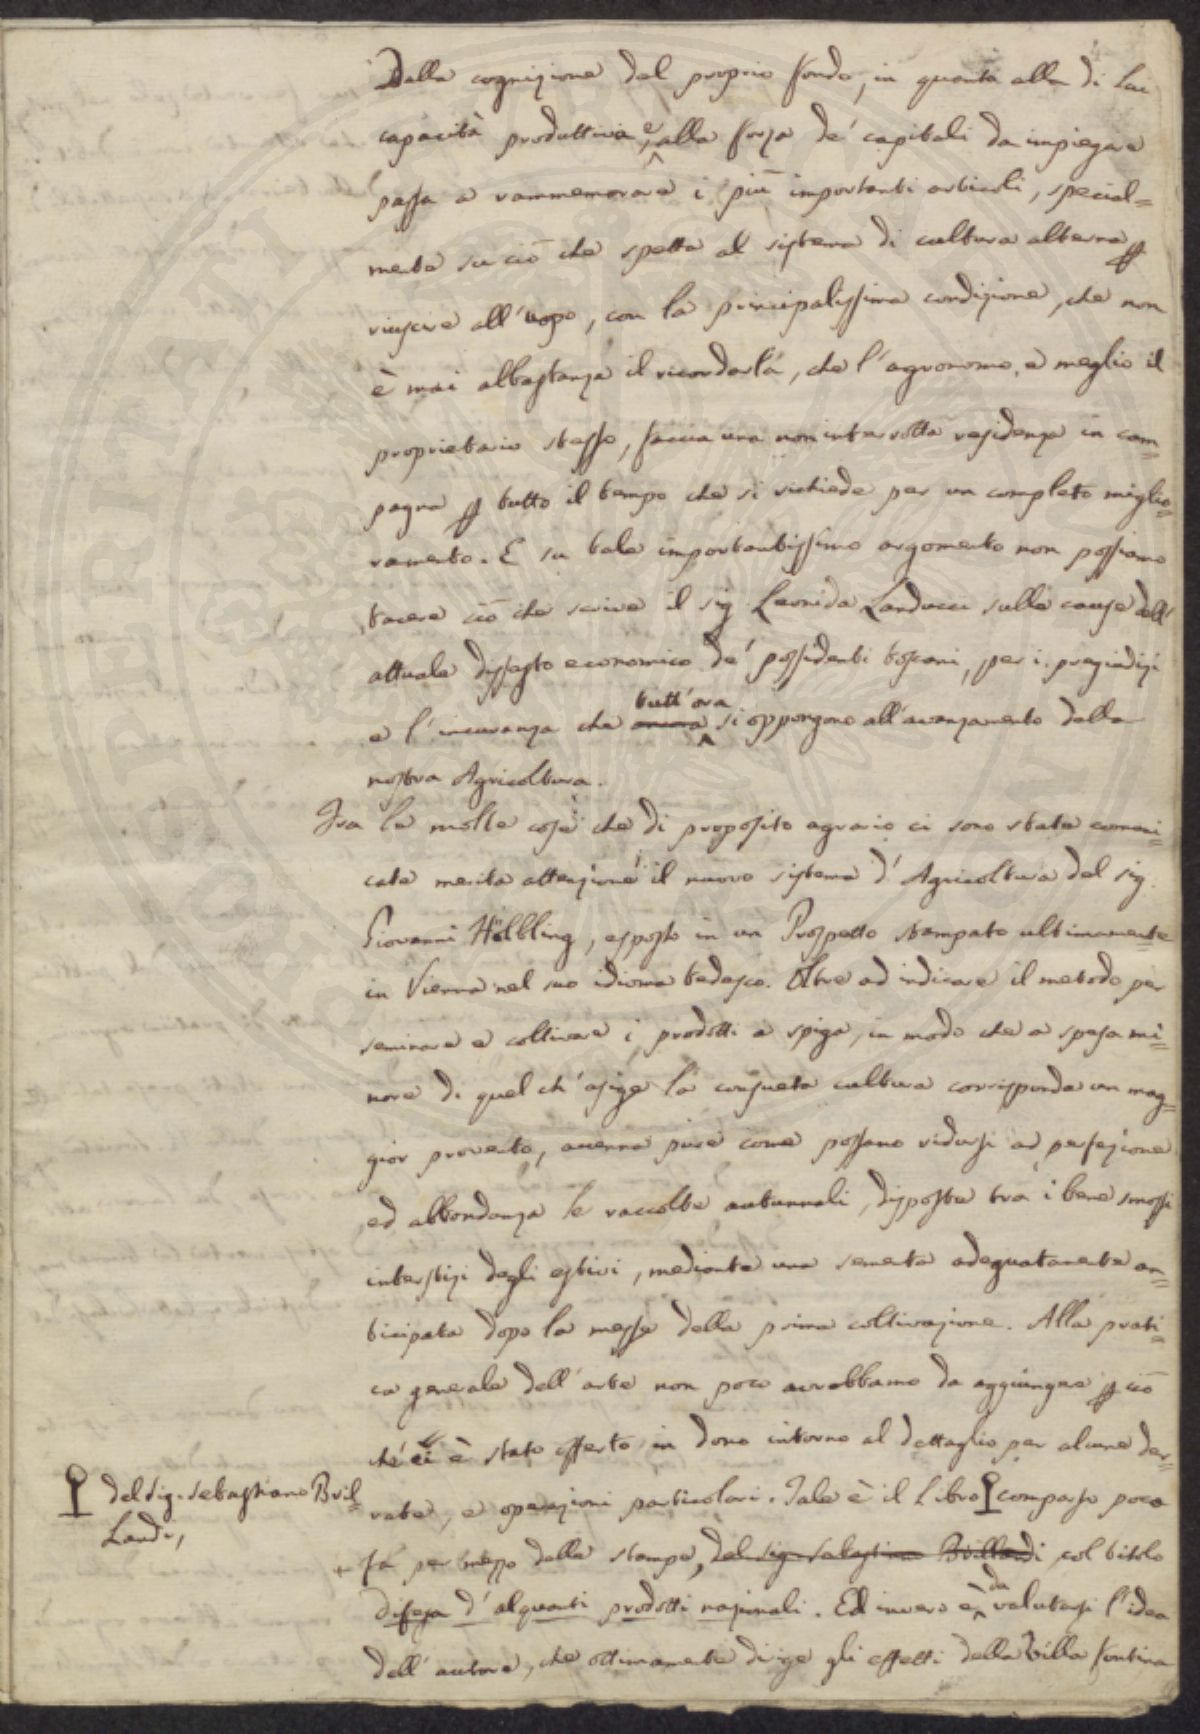 Dalla cognizione del proprio fondo, in quanto alla di lui
capacità produttiva, e alla forza de' capitali da impiegare
passa a rammemorare i più importanti articoli, special=
mente su ciò che spetta al sistema di cultura alterna p
riuscire all'uopo, con la principalissima condizione, che non
è mai abbastanza il ricordarla, che l'agronomo, e meglio il
proprietario stesso, faccia una non interrotta residenza in cam=
pagna p tutto il tempo che si richiede per un completo miglio=
ramento. E su tale importantissimo argomento non possiamo
tacere ciò che scrive il sig Leonida Landucci sulle cause dell'
attuale dissesto economico de' possidenti toscani, per i pregiudizi
e l'incuranza che tutt'ora si oppongono all'avanzamento della
nostra Agricoltura.
Tra le molte cose che di proposito agrario ci sono state comuni=
cate merita attenzione il nuovo sistema d'Agricoltura del sig.
Giovanni Hölbling, esposto in un Prospetto stampato ultimamente
in Vienna nel suo idioma tedesco. Oltre ad indicare il metodo per
seminare e coltivare i prodotti a spiga, in modo che a spesa mi=
nore di quel ch'esige la consueta cultura corrisponda un mag=
gior provento, accenna pure come possano ridursi ad perfezione
ed abbondanza le raccolte autunnali, disposte tra i bene smossi
interstizi degli estivi, mediante una sementa adeguatamente an=
ticipata dopo la messe della prima coltivazione. Alla prati=
ca generale dell'arte non poco avrebbamo da aggiungere p ciò
che ci è stato offerto in dono intorno al dettaglio per alcune der=
rate, e operazioni particolari. Tale è il Libro comparso poco
del sig. Sebastiano Bril=
landi,
fa per mezzo delle stampe, del sig. Sebastiano Brillandi col titolo
difesa d'alquanti prodotti nazionali. Ed invero è da valutarsi l'idea
dell'autore, che ottimamente dirige gli effetti della Villa Fontina